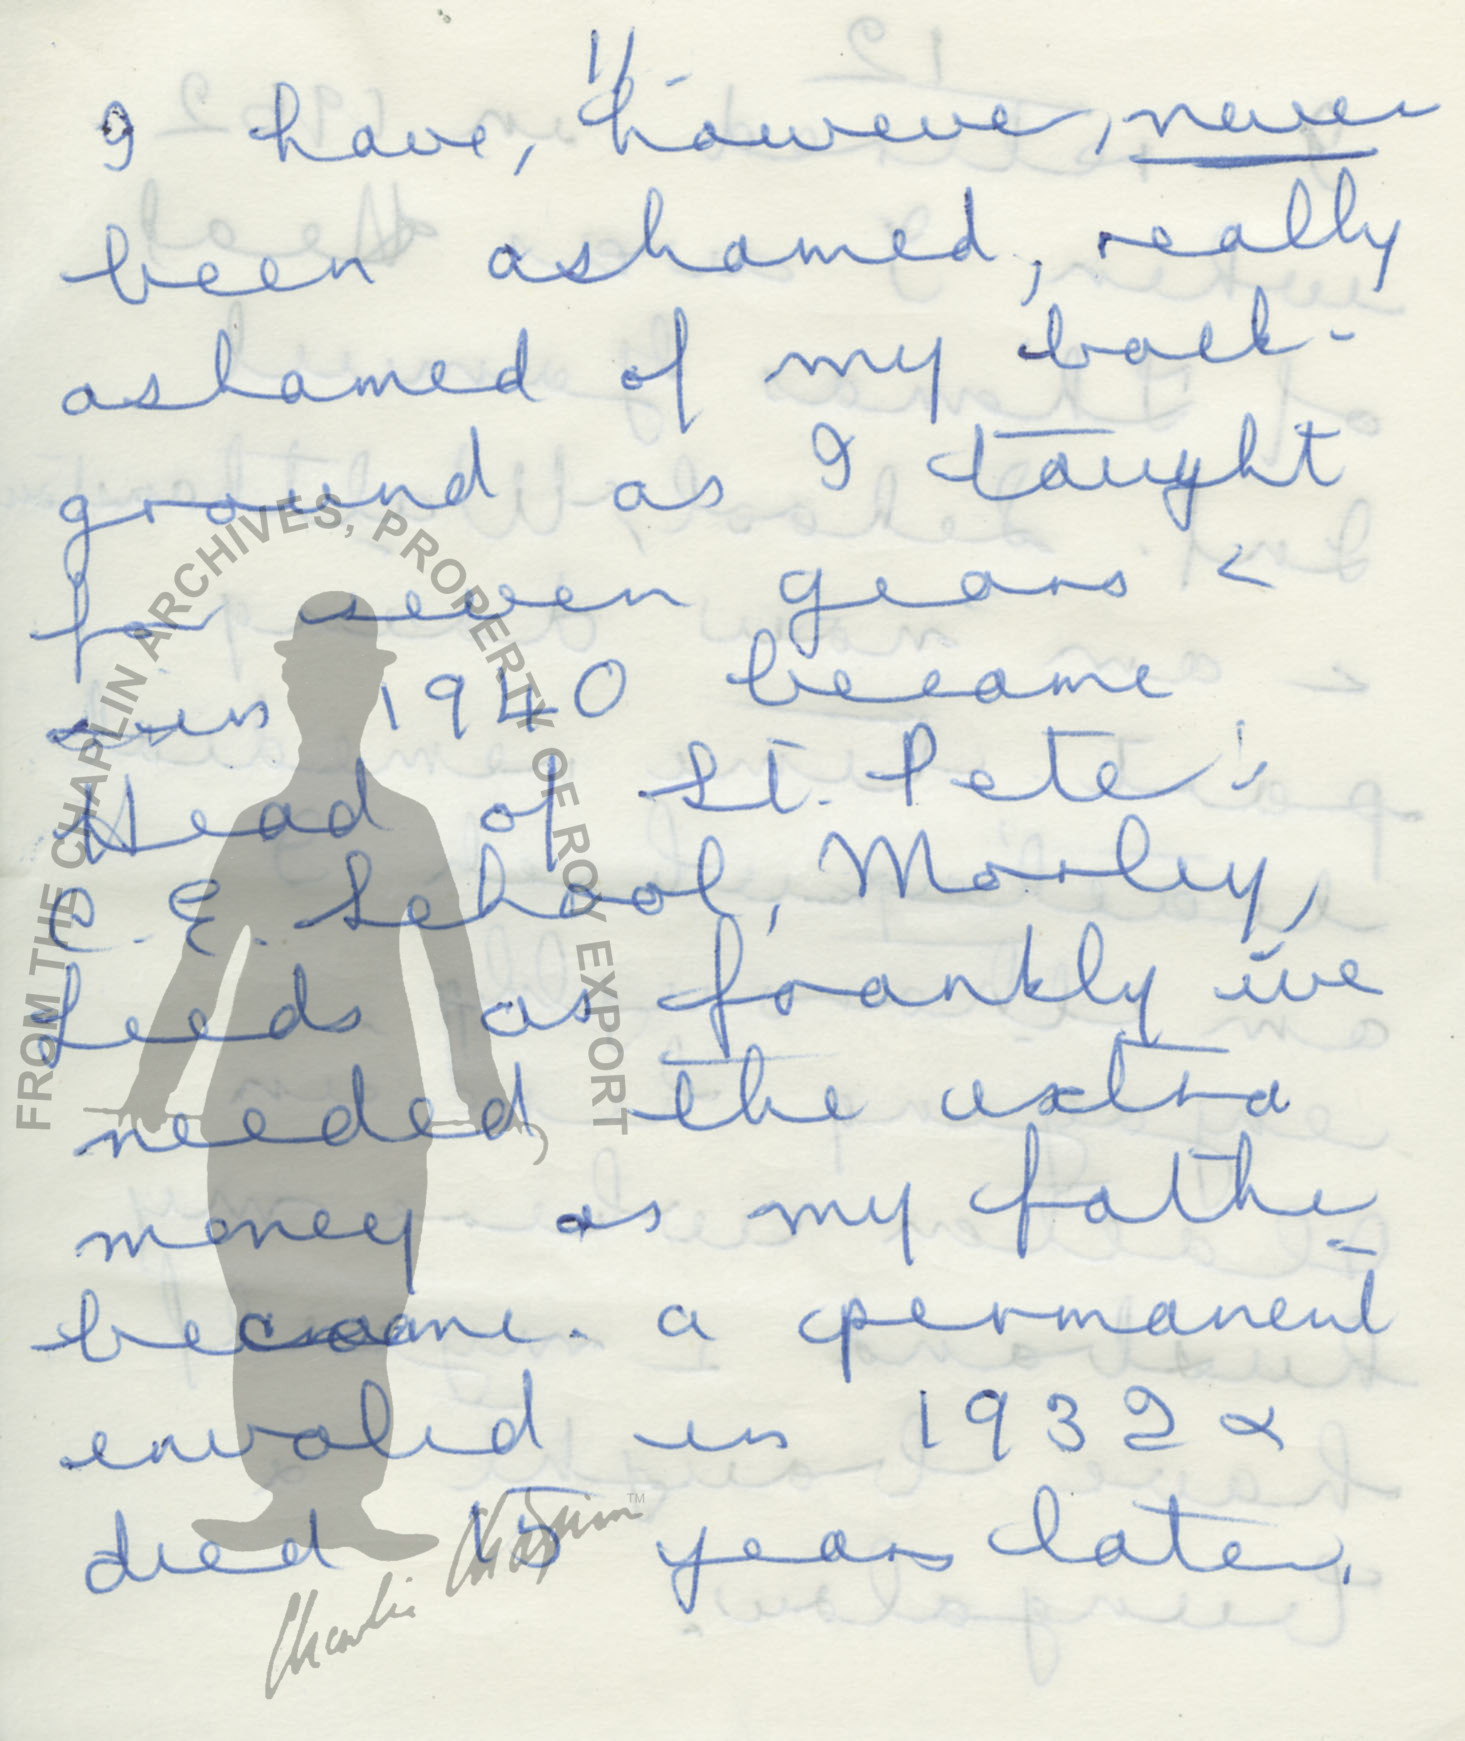 11/.
I have, however, never
been ashamed, really
ashamed of my back-
ground as I taught
for seven years &
in 1940 became
Head of St. Peter's
C.E. School, Morley,
Leeds as frankly we
needed the extra
money as my father
became a permanent
invalid in 1932 &
died 15 years later.
FROM THE CHAPLIN ARCHIVES, PROPERTY OF ROY EXPORT
Charlie Chaplin™